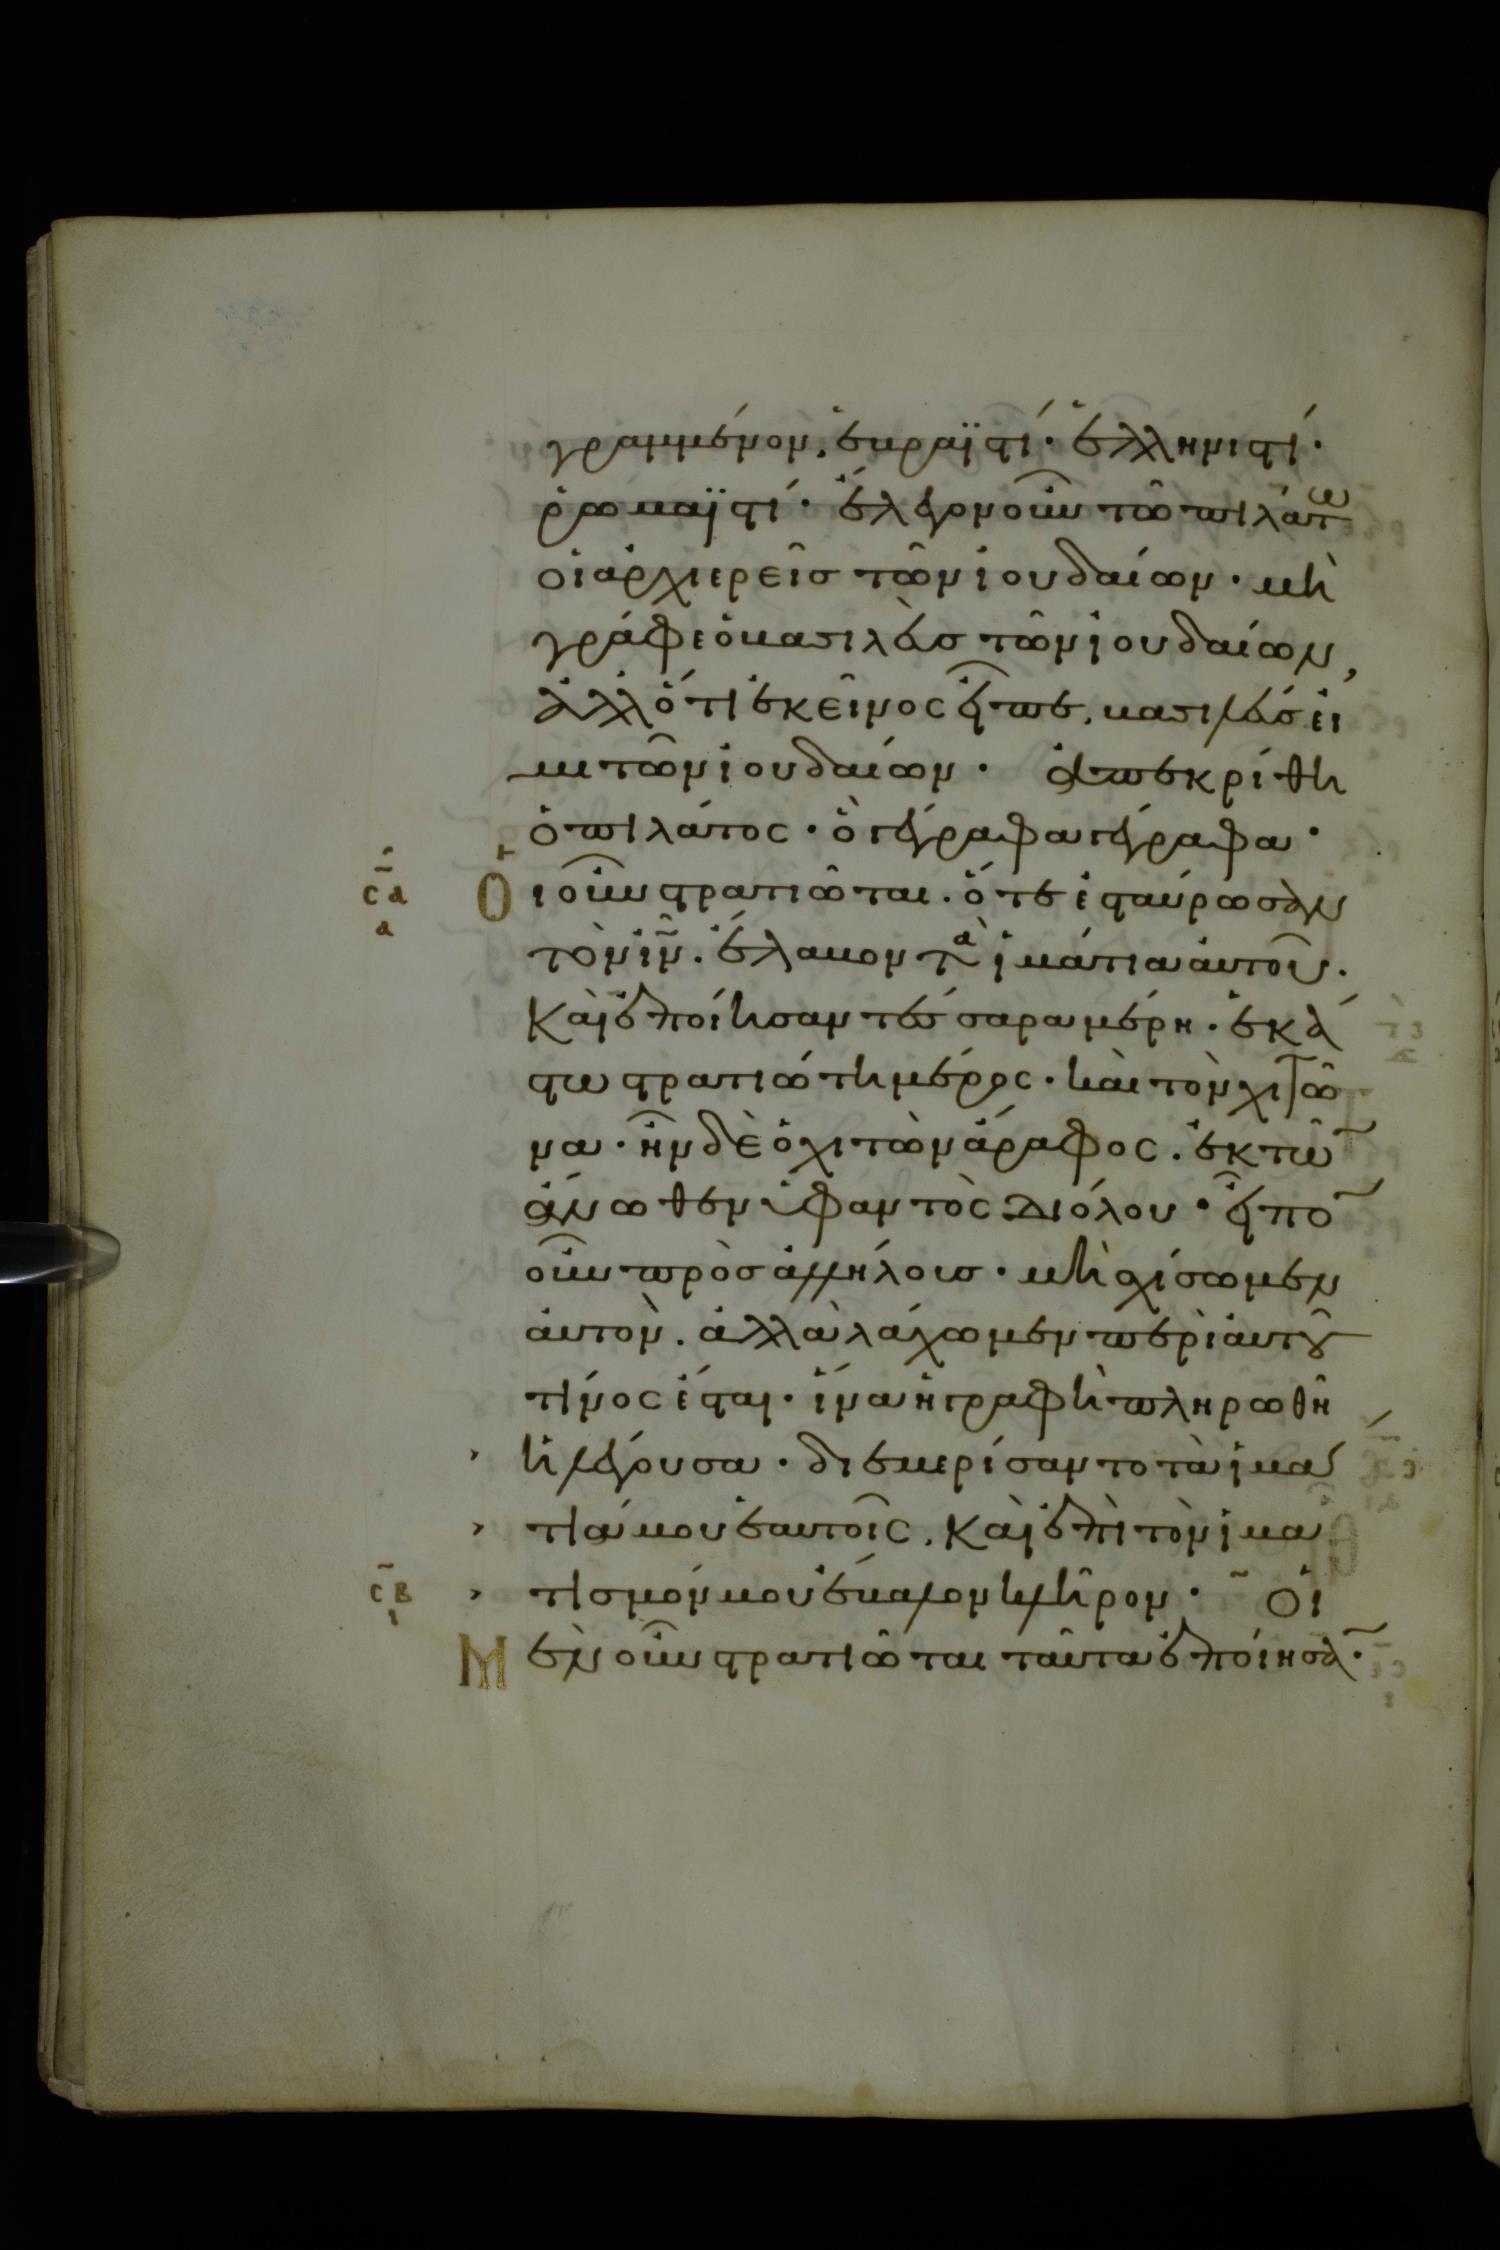 γραμμένον, ἑβραϊστί· ἑλληνιστί·
ῥωμαϊστί· ἔλεγον οὖν τῶ πιλάτω
οἱ ἀρχιερεῖσ τῶν ἰουδαίων· μὴ
γράφε ὁ βασιλεὺσ τῶν ἰουδαίων,
ἀλλ ὅτι ἐκεῖνος εἶπε, βασιλεύσ εἰ
μι τῶν ἰουδαίων· ἀπεκρίθη
ὁ πιλάτος· ὃ γέγραφα γέγραφα·
σα
α
Οἱ οὖν στρατιῶται· ὅτε ἐσταύρωσαν
τὸν ιν̄· ἔλαβον τὰ ἱμάτια αὐτοῦ·
Καὶ ἐποίησαν τέσσαρα μέρη· ἑκά
στω στρατιώτη μέρος· καὶ τὸν χιτῶ
να· ἦν δὲ ὁ χιτὼν ἄραφος· ἐκ τῶ̄
ἄνωθεν ὑφαντὸς διόλου· εἶπο̄
οὖν πρὸσ ἀλλήλουσ· μὴ σχίσωμεν
αὐτὸν· ἀλλὰ λάχωμεν περὶ αὐτοῦ
τίνος ἔσται· ἵνα ἡ γραφὴ πληρωθῆ
ἡ λέγουσα· διεμερίσαντο τὰ ἱμά
τιά μου ἑαυτοῖς, Καὶ ἐπὶ τὸν ἱμα
τισμόν μου ἔβαλον κλῆρον· Οἱ
σβ
ι
Μὲν οὖν στρατιῶται ταῦτα ἐποίησᾱ·